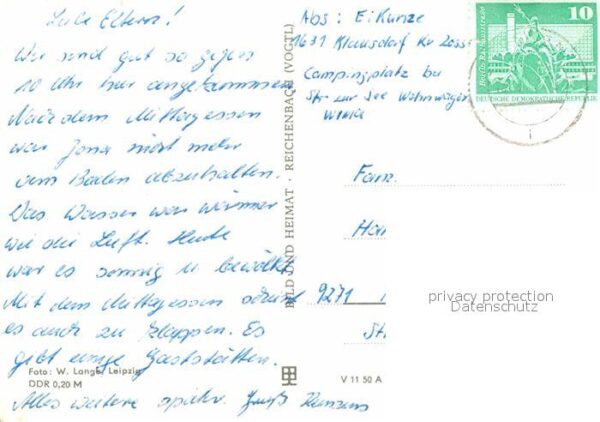 Liebe Eltern!
Wir sind gut so gegen
10 Uhr hier angekommen
Nach dem Mittagessen
war Jana nicht mehr
vom Baden abzuhalten.
Das Wasser war wärmer
wie die Luft. Heute
war es sonnig u. bewölkt
Mit dem Mittagessen scheint
es auch zu klappen. Es
gibt einige Gaststätten.
Alles weitere später. Gruß
Foto: W. Lange, Leipzig
DDR 0,20 M
BILD UND HEIMAT REICHENBACH (VOGTL)
V 11 50 A
Abs: E. Kunze
1631 Klausdorf Kr Zoss
Campingplatz
Str zur See Wohnwagen
Fam.
9271
St
10
Berlin-Rathausstraße
DEUTSCHE DEMOKRATISCHE REPUBLIK
privacy protection
Datenschutz